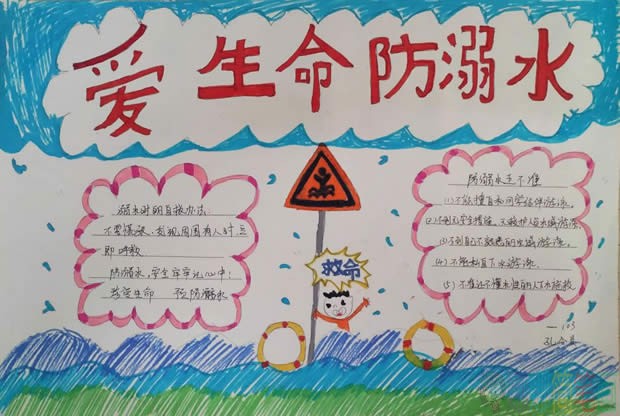 爱生命防溺水
溺水时的自救办法:
不要慌张,发现周围有人时,立
即呼救
防溺水,安全牢牢记心中!
珍爱生命 预防溺水
救命
防溺水五不准
(1)不能擅自和同学结伴游泳。
(2)不到无安全措施、无救护人员水域游泳。
(3)不到自己不熟悉的水域游泳。
(4)不能私自下水游泳。
(5)不准还不懂水性的人下水施救
一103